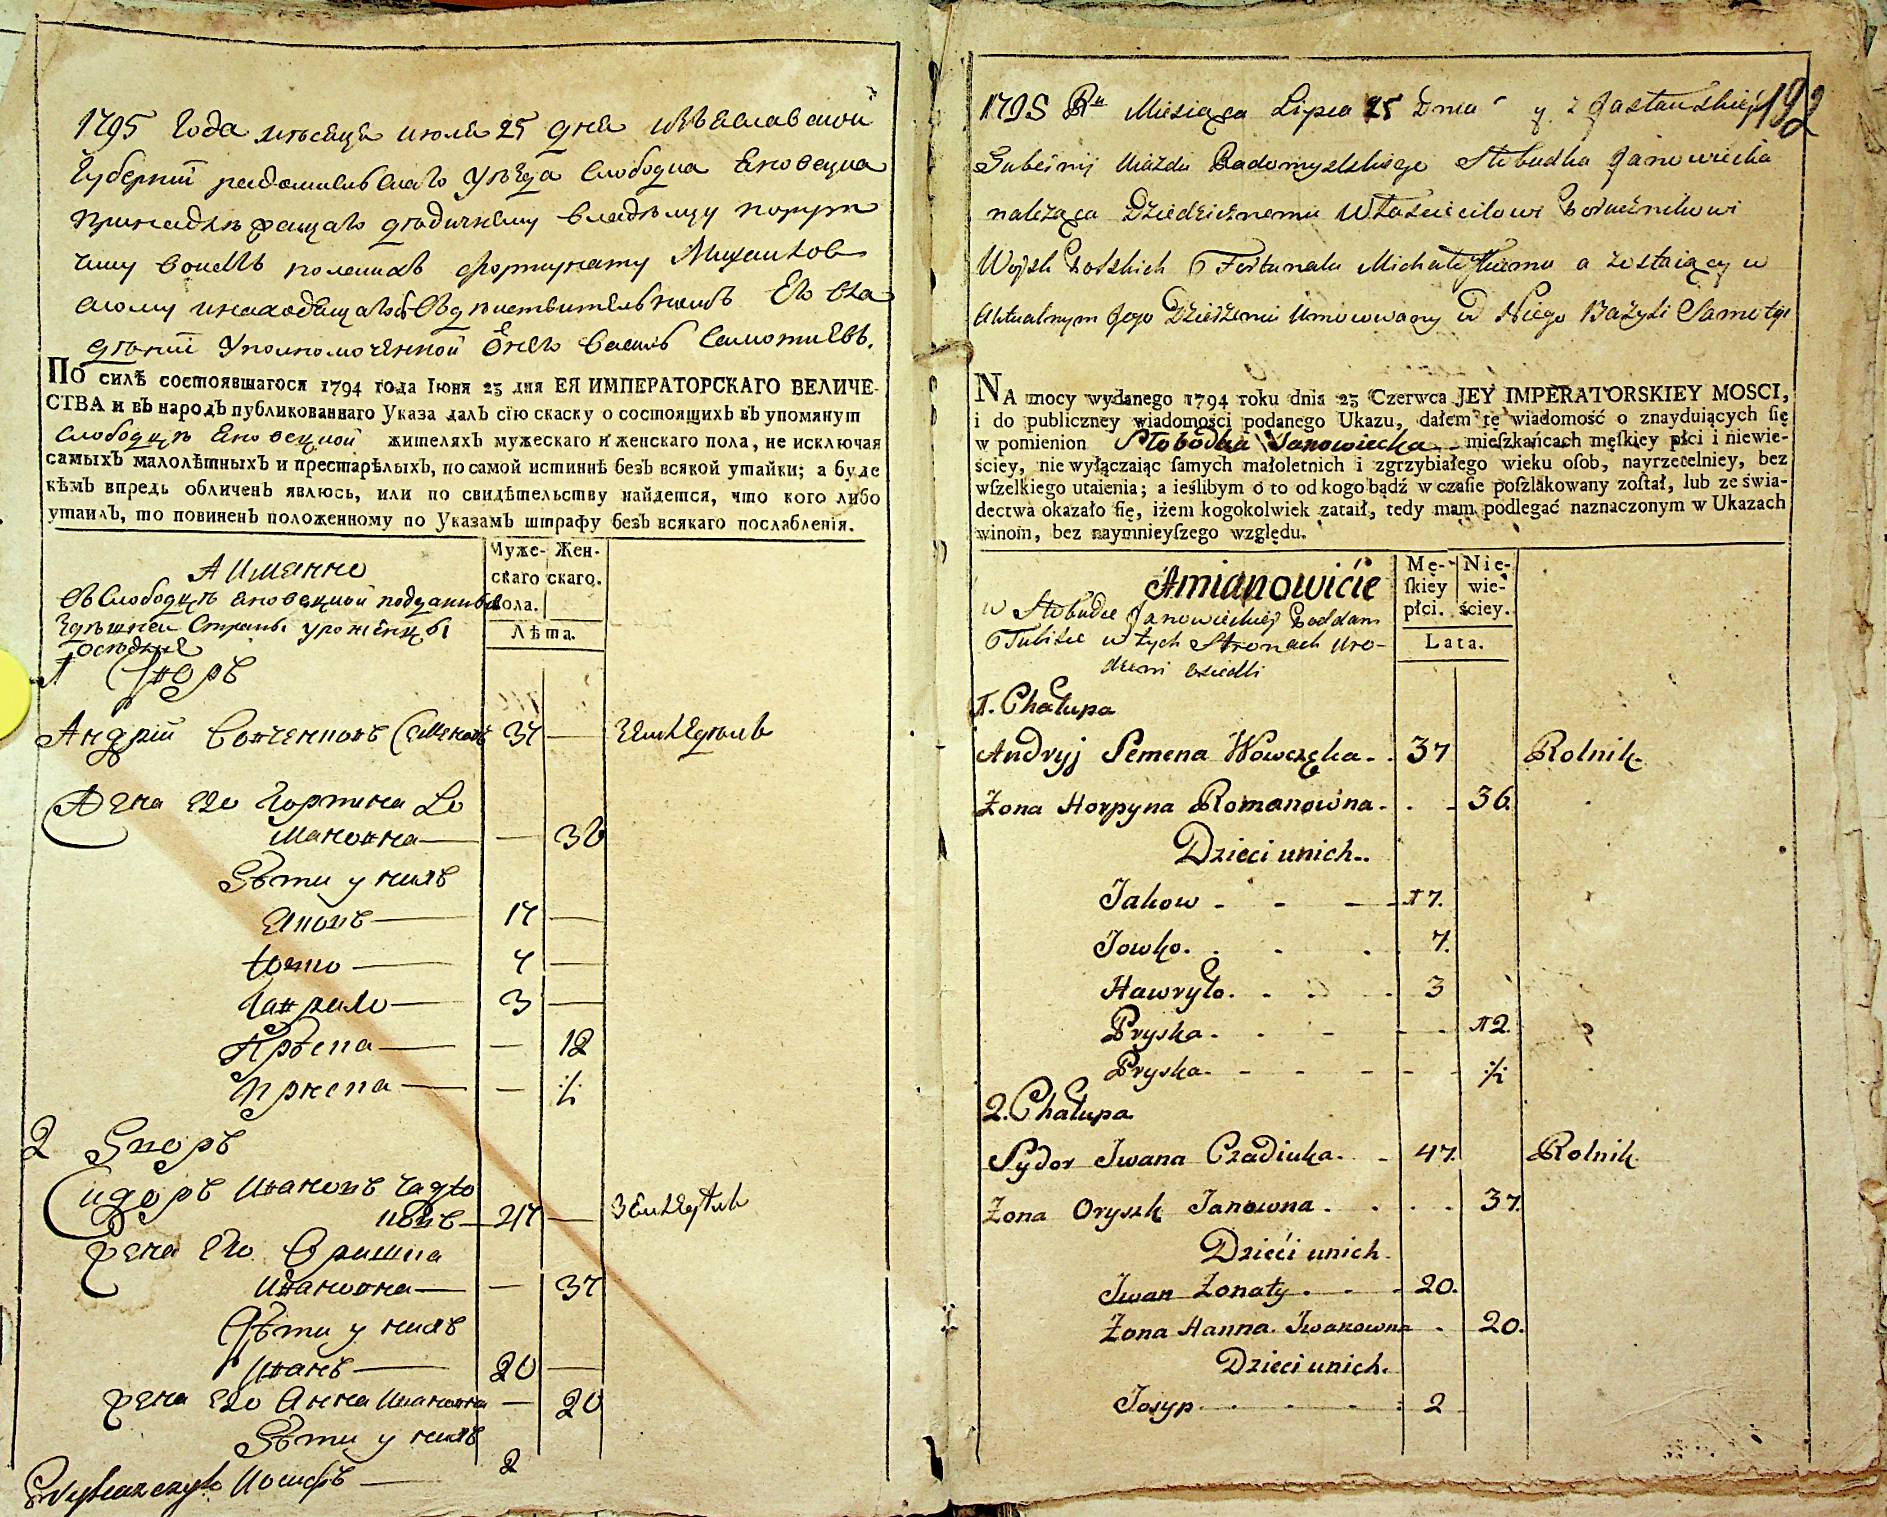 1795 года мѣсяца июля 25 дня Изѣаславской
Губернїи радомисльскаго уѣзда слободка Яновецка
принадлѣжащаго дѣдичному владѣлцу поруч
чику войскъ полскихъ Фортунату Михалков
скому инаходящагось въдѣиствителномъ Его вла
дѣнїи Уполномоченной Онего Василь Самотиевъ.
ПО силѣ состоявшагося 1794 года Іюня 23 дня ЕЯ ИМПЕРАТОРСКАГО ВЕЛИЧЕ-
СТВА и въ народъ публикованнаго Указа далъ сїю скаску о состоящихъ въ упомянут
слободцѣ Яновецкой жителяхъ мужескаго и женскаго пола, не исключая
самыхъ малолѣтныхъ и престарѣлыхъ, по самой истиннѣ безъ всякой утайки; а буде
кѣмъ впредь обличенъ явлюсь, или по свидѣтельству найдется, что кого либо
утаилъ, то повиненъ положенному по Указамъ штрафу безъ всякаго послабленія.
Муже- Жен-
скаго скаго.
пола.
Лѣта.
А Имянно
въ Слободцѣ Яновецкой подданные
Здѣшней Страны уроженцы
1 Дворъ
Андрїй Вовченковъ Семеновъ 37 — земледѣлъ
Жена его Горпина Ро
мановна — — 36
Дѣти у нихъ
Яковъ — 17 —
Iовко — 7 —
Гаврило — 3 —
Приска — — 12
Приска — — ½
2 Дворъ
Сидоръ Ивановъ Чадю
ковъ — 47 — земледѣл
жена его Оришка
Ивановна — — 37
Дѣти у нихъ
Иванъ — 20 —
жена его Анна Ивановна — 20
Дѣти у нихъ
Иосифъ — 2
1795 Rᵘ Miesiąca Lipca 25 Dnia z Jzasławskiey 192
Gubernij Uiazdu Radomyslskiego Słobudka Janowiecka
należąca Dziedzicznemu Włascicielowi Porucznikowi
Woysk Polskich Fortunatu Michałkowskiemu a zostaiący w
Aktualnym Jego Dzierżeniu Umocowany od Niego Bazyli Samotyi
NA mocy wydanego 1794 roku dnia 23 Czerwca JEY IMPERATORSKIEY MOSCI,
i do publiczney wiadomości podanego Ukazu, dałem tę wiadomość o znayduiących ſię
w pomienion Słobodka Janowiecka mieſzkańcach męſkiey płci i niewie-
ściey, nie wyłączaiąc ſamych małoletnich i zgrzybiałego wieku oſob, nayrzetelniey, bez
wſzelkiego utaienia; a ieślibym o to od kogo bądź w czaſie poſzlakowany zoſtał, lub ze świa-
dectwa okazało ſię, iżem kogokolwiek zataił, tedy mam podlegać naznaczonym w Ukazach
winom, bez naymnieyſzego względu.
Mę- Nie-
ſkiey wie-
płci. ściey.
Lata.
Amianowićie
w Słobudce Janowieckiej Poddani
Tubilce w tych Stronach uro-
dzeni osiedli
1. Chałupa
Andryj Semena Wowczęka 37 Rolnik
Żona Horpyna Romanowna 36
Dzieci unich
Jakow 17.
Jowko 7.
Hawryło 3
Pryska 12.
Pryska ½
2. Chałupa
Sydor Jwana Czadiuka 47 Rolnik
Żona Oryszk Janowna 37.
Dzieći unich
Jwan Żonaty 20.
Żona Hanna Jwanowna 20.
Dzieci unich.
Josyp 2